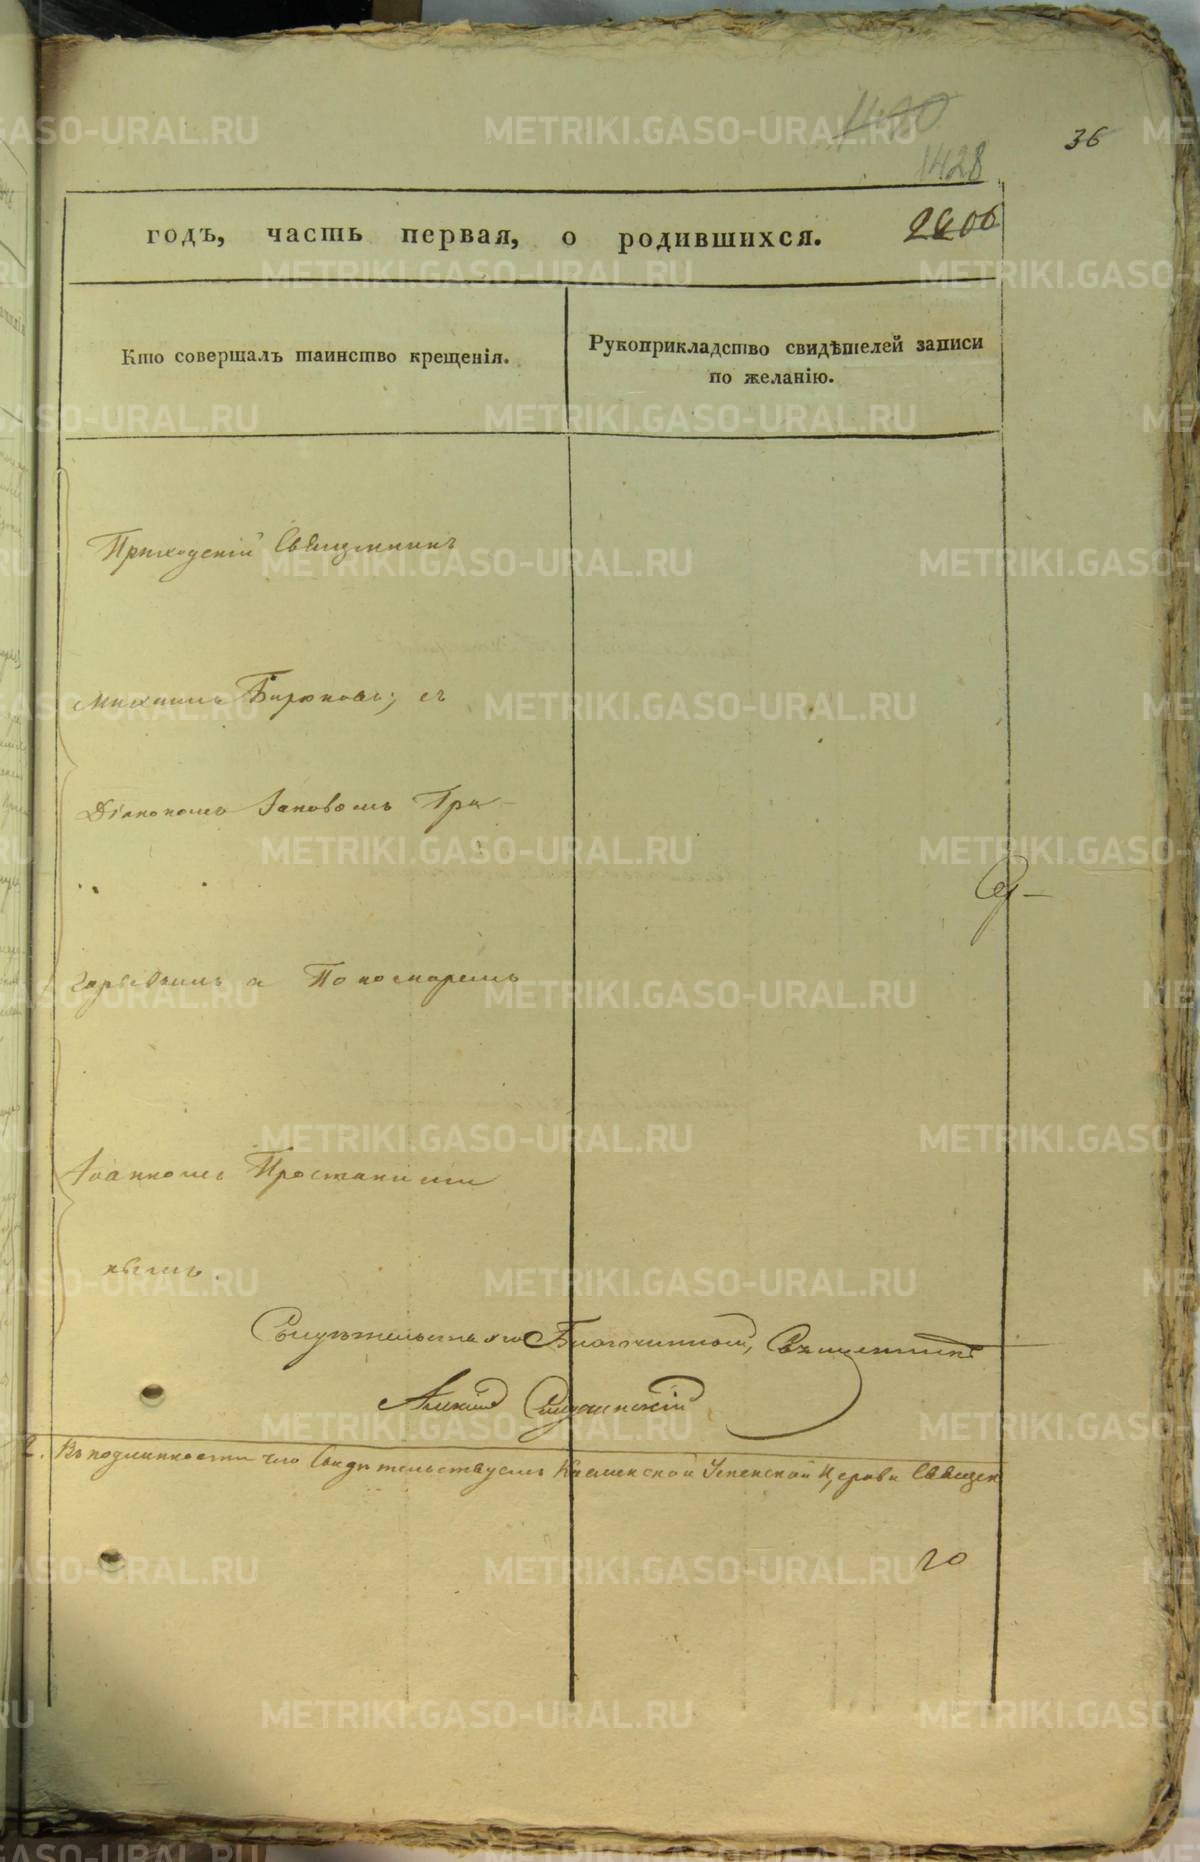 1428
36
годъ, часть первая, о родившихся.
2606
Кто совершалъ таинство крещенія.
Рукоприкладство свидѣтелей записи
по желанію.
Приходскій Священникъ
Михаилъ Бирюковъ; съ
Діакономъ Іаковомъ Гри-
горьевымъ и Пономаремъ
Іоанномъ Простаниши
нымъ.
Свидѣтельствовалъ Благочинный, Священникъ
Алексій
Въ подлинности чего Свидѣтельствуемъ Каменской Успенской Церкви Священ
20
METRIKI.GASO-URAL.RU